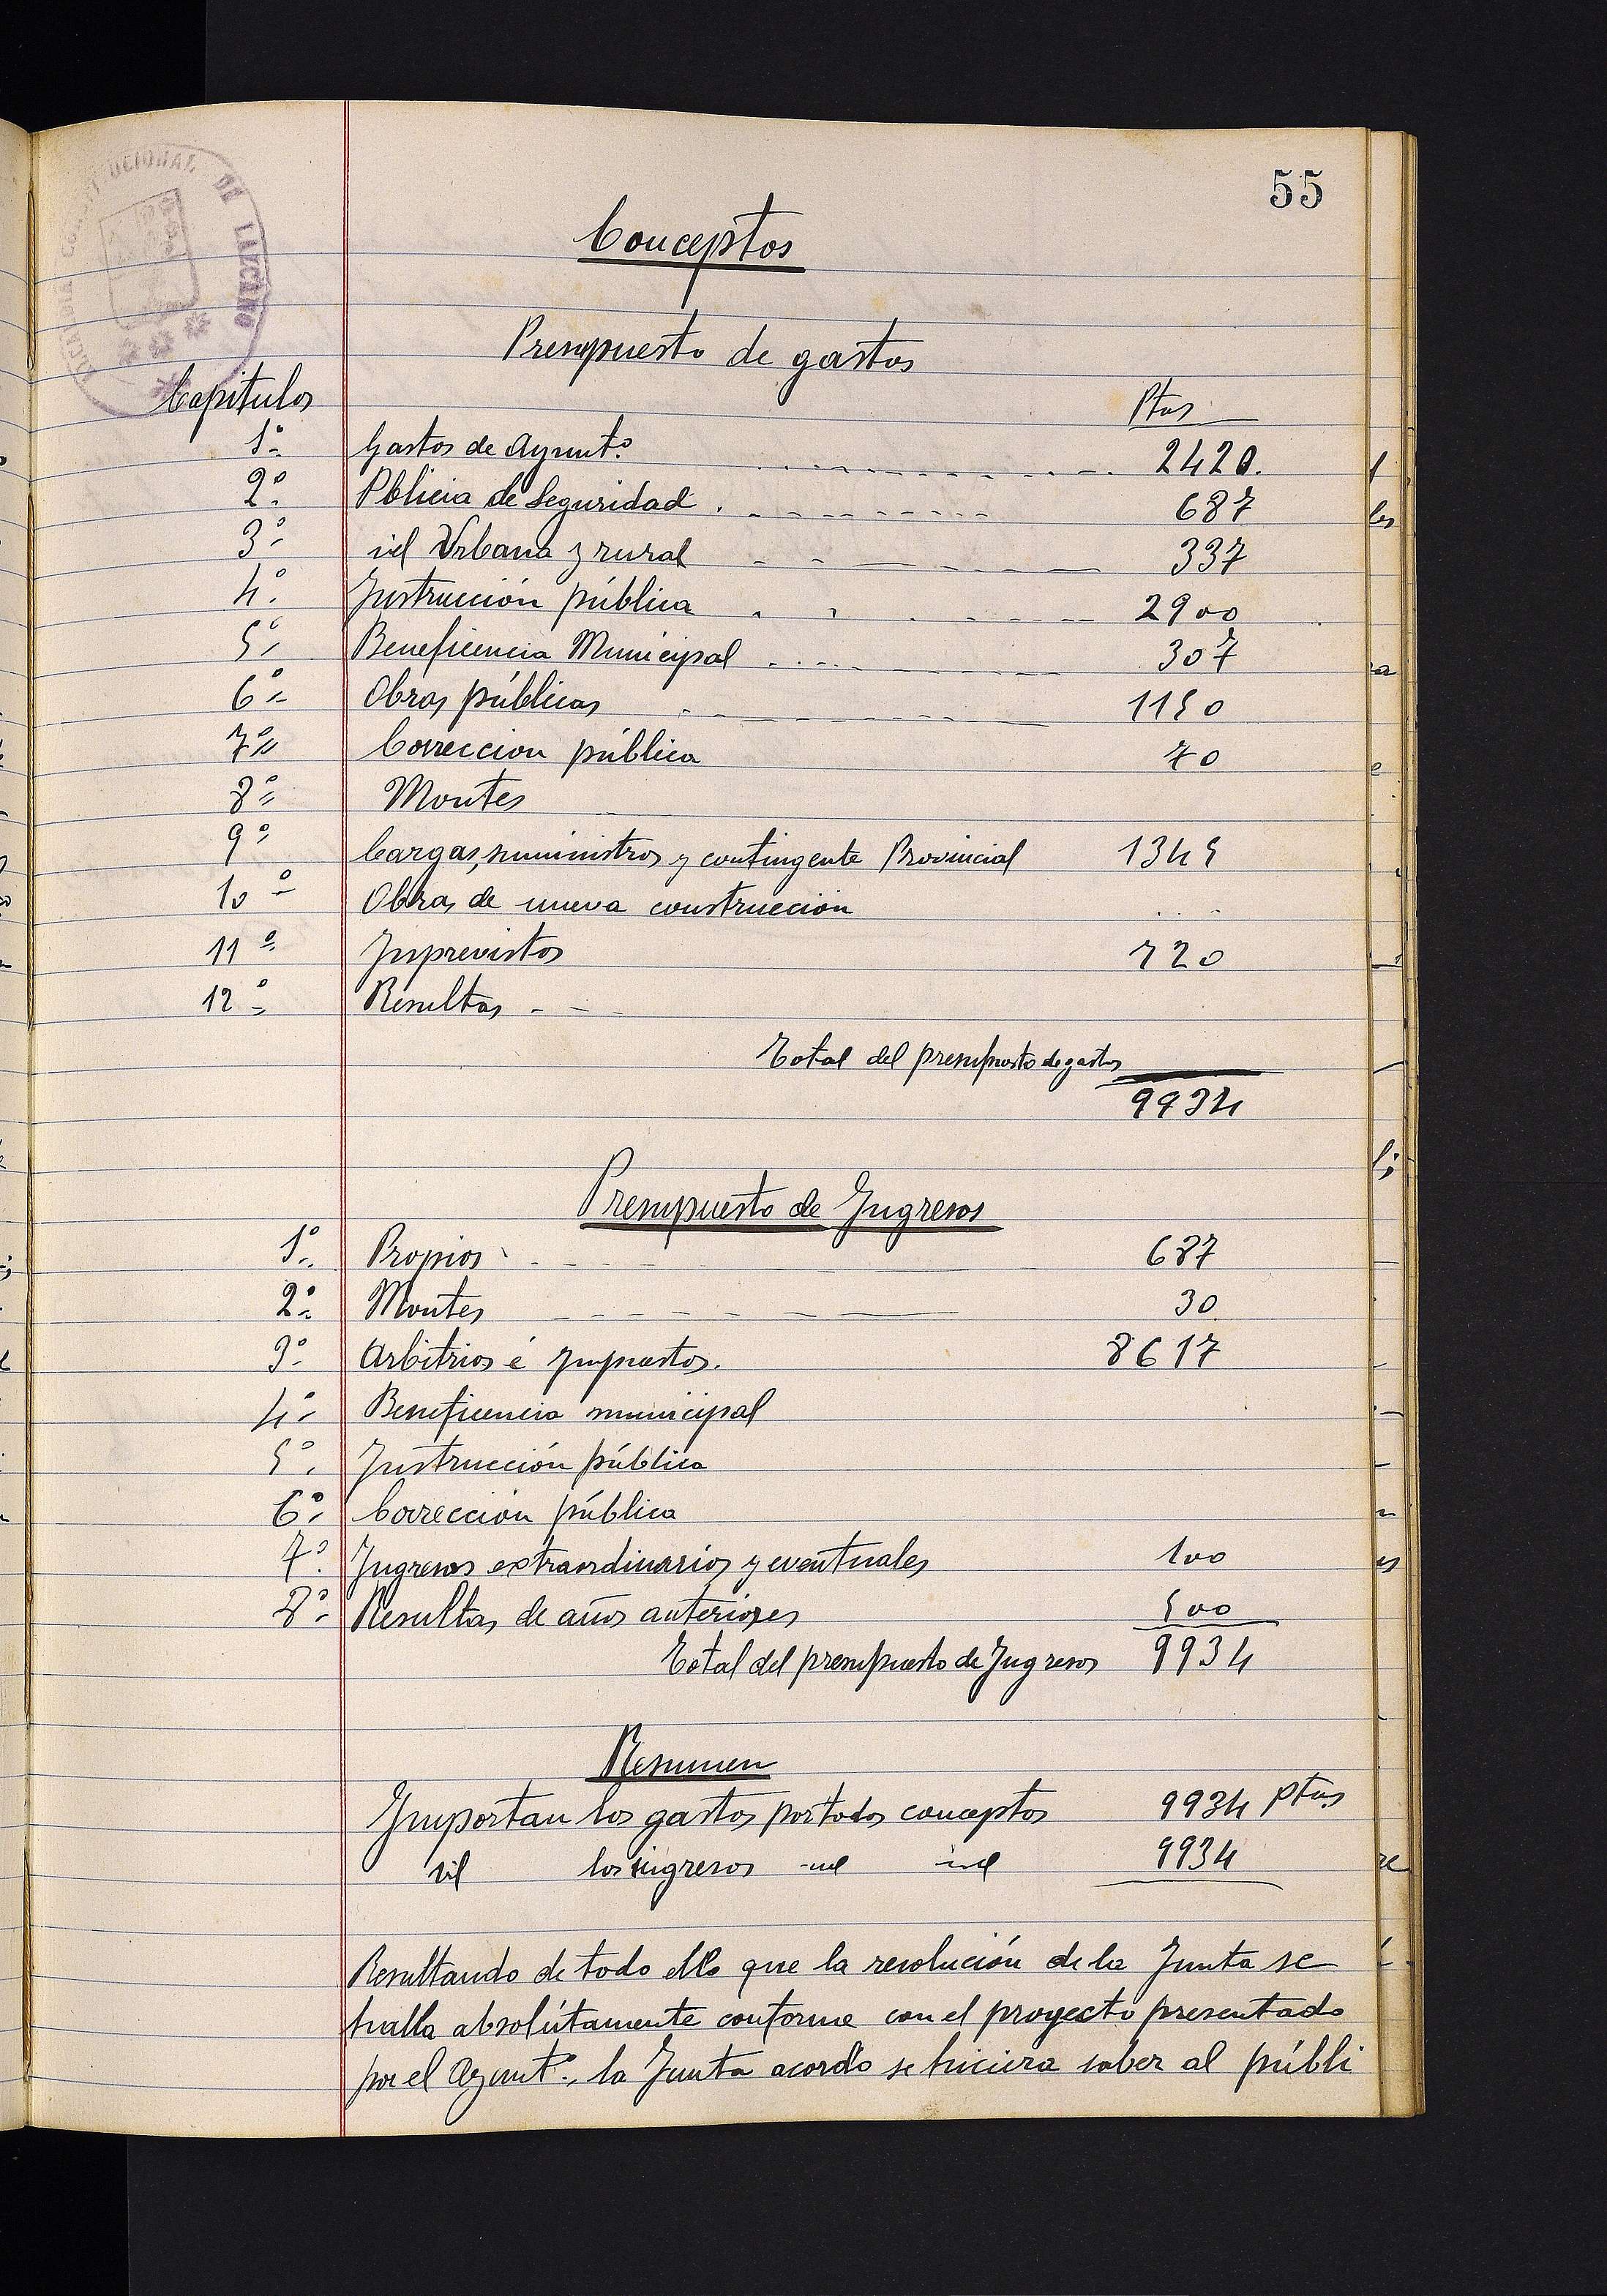 55
ALCALDIA CONSTITUCIONAL DE LAZCANO
Conceptos
Presupuesto de gastos
Capitulos Ptas
1º Gastos de Ayuntº 2420.
2º Policia de Seguridad 687
3º id Urbana y rural 337
4º Instrucción pública 2900
5º Beneficencia Municipal 307
6º Obras públicas 1150
7º Corrección pública 70
8º Montes
9º Cargas, suministros y contingente Provincial 1345
10º Obras de nueva construcción
11º Imprevistos 720
12º Resultas
Total del presupuesto de gastos
9934
Presupuesto de Ingresos
1º Propios 687
2º Montes 30
3º Arbitrios é Impuestos. 8617
4º Beneficencia municipal
5º Instrucción pública
6º Corrección pública
7º Ingresos extraordinarios y eventuales 100
8º Resultas de años anteriores 500
Total del presupuesto de Ingresos 9934
Resumen
Importan los gastos por todos conceptos 9934 Ptas
id los ingresos id id 9934
Resultando de todo ello que la resolución de la Junta se
halla absolútamente conforme con el proyecto presentado
por el Ayuntº, la Junta acordó se hiciera saber al públi